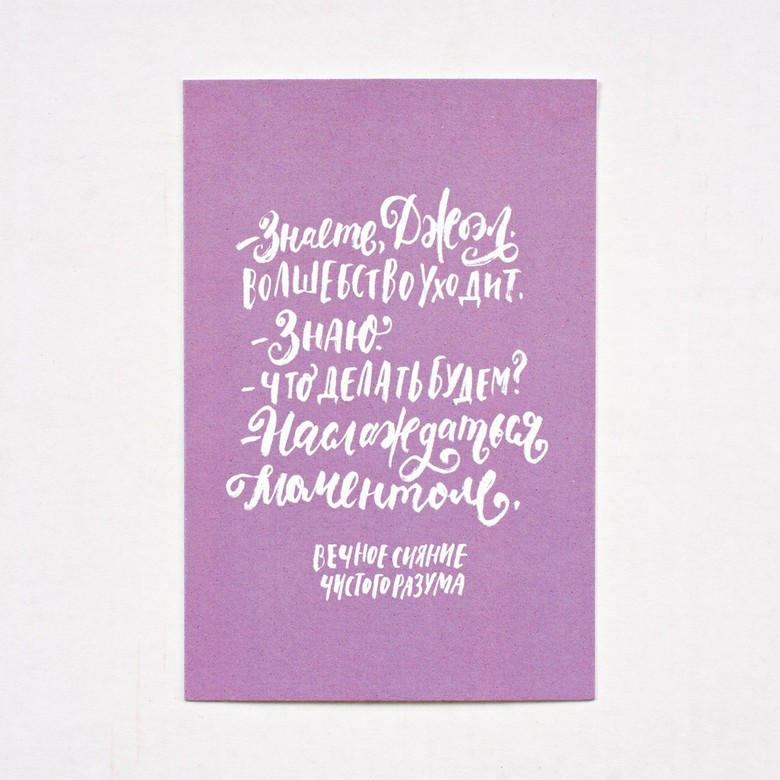 - Знаете, Джоэл.
ВОЛШЕБСТВО УХОДИТ.
- ЗНАЮ.
- ЧТО ДЕЛАТЬ БУДЕМ?
- Наслаждаться
моментом.
ВЕЧНОЕ СИЯНИЕ
ЧИСТОГО РАЗУМА